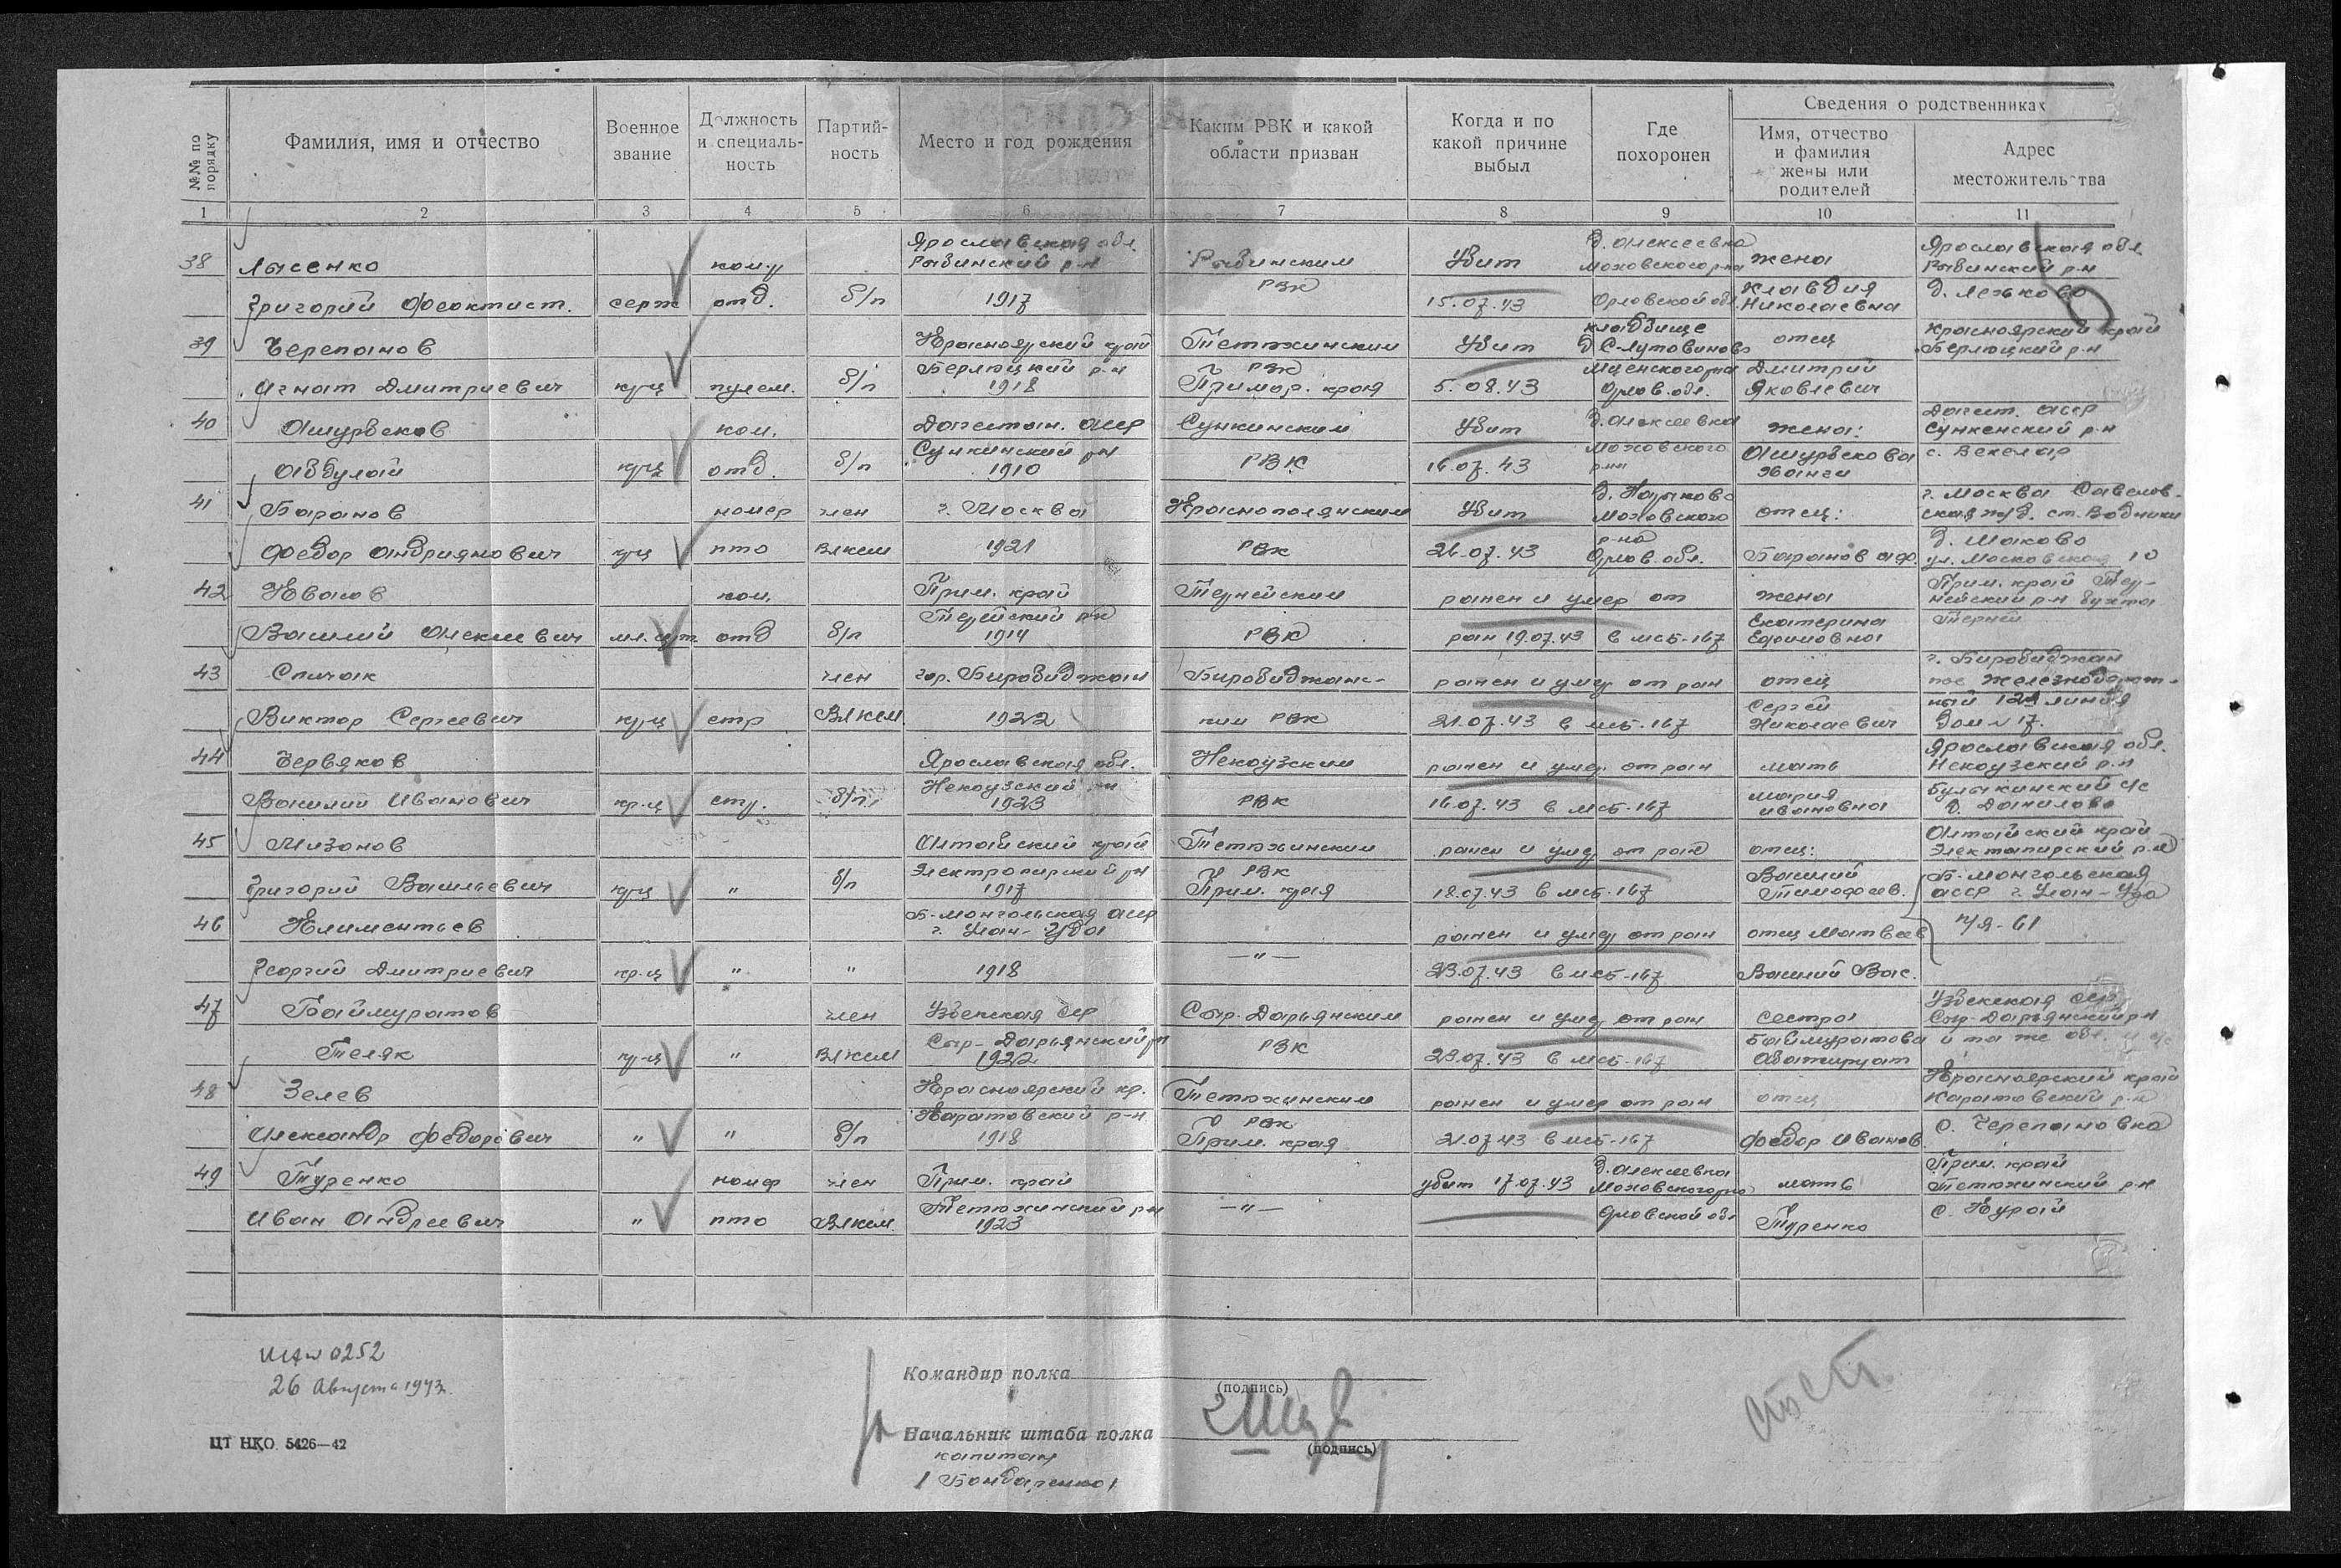 №№ по порядку
Фамилия, имя и отчество
Военное звание
Должность и специальность
Партийность
Место и год рождения
Каким РВК и какой области призван
Когда и по какой причине выбыл
Где похоронен
Сведения о родственниках
Имя, отчество и фамилия жены или родителей
Адрес местожительства
1 2 3 4 5 6 7 8 9 10 11
38 Лысенко ком. Ярославская обл. Рыбинский р-н Рыбинским РВК Убит д. Алексеевка Моховского р-на жена Ярославская обл. Рыбинский р-н
Григорий Феоктист. серж отд. б/п 1917 15.07.43 Орловской обл. Клавдия Николаевна
39 Черепанов Красноярский край Тетюхинским РВК Убит кладбище отец Красноярский край
Игнат Дмитриевич кр-ц пулем. б/п 1918 Примор. края 5.08.43 Мценского р-на Орлов. обл. Дмитрий Яковлевич
40 Ашурбеков ком. Дагестан. АССР Убит д. Алексеевка жена: Дагест. АССР
Абдулай кр-ц отд. б/п 1910 РВК 16.07.43 Моховского р-на Ашурбекова
41 Баранов номер член г. Москва Краснополянским Убит Моховского отец: г. Москва Савелов-
Федор Андриянович кр-ц пто ВЛКСМ 1921 РВК 26.07.43 р-на Орлов. обл. Баранов ул. Московская 10
42 Иванов ком. Прим. край Тернейским ранен и умер от жена Прим. край Тер-
Василий Алексеевич мл. серж. отд б/п 1914 РВК ран 19.07.43 в мсб-167 Екатерина Ефимовна нейский р-н бухта Терней
43 Спичак член гор. Биробиджан Биробиджанс- ранен и умер от ран отец г. Биробиджан
Виктор Сергеевич кр-ц стр ВЛКСМ 1922 ким РВК 21.07.43 в мсб-167 Сергей Николаевич дом № 17.
44 Червяков Ярославская обл. Некоузским ранен и умер от ран мать Ярославская обл. Некоузский р-н
Василий Иванович кр-ц стр. б/п Некоузский р-н 1923 РВК 16.07.43 в мсб-167 Мария Ивановна д. Данилово
45 Мизонов Алтайский край Тетюхинским ранен и умер от ран отец: Алтайский край
Григорий Васильевич кр-ц " б/п 1917 РВК Прим. края 18.07.43 в мсб-167 Василий Тимофеев. Б-Монгольская АССР г. Улан-Удэ
46 Климентьев Б-Монгольская АССР г. Улан-Удэ ранен и умер от ран отец Матвеев п/я-61
Георгий Дмитриевич кр-ц " " 1918 —"— 23.07.43 в мсб-167 Василий Вас.
47 Баймуратов член Узбекская ССР Сыр-Дарьянским ранен и умер от ран сестра Узбекская ССР Сыр-Дарьянский р-н
Теляк кр-ц " ВЛКСМ Сыр-Дарьянский р-н 1922 РВК 23.07.43 в мсб-167 Баймуратова
48 Зелев Красноярский кр. Тетюхинским ранен и умер от ран отец Красноярский край
Александр Федорович " " б/п Каратовский р-н 1918 РВК Прим. края 21.07.43 в мсб-167 Федор Иванов. Каратовский р-н с. Черепановка
49 Туренко номер член Прим. край убит 17.07.43 д. Алексеевка Моховского р-на мать Прим. край Тетюхинский р-н
Иван Андреевич " пто ВЛКСМ Тетюхинский р-н 1923 —"— Орловской обл Туренко
26 Августа 1943.
ЦТ НКО 5426—42
Командир полка
(подпись)
Начальник штаба полка
(подпись)
капитан
/ Бондаренко /